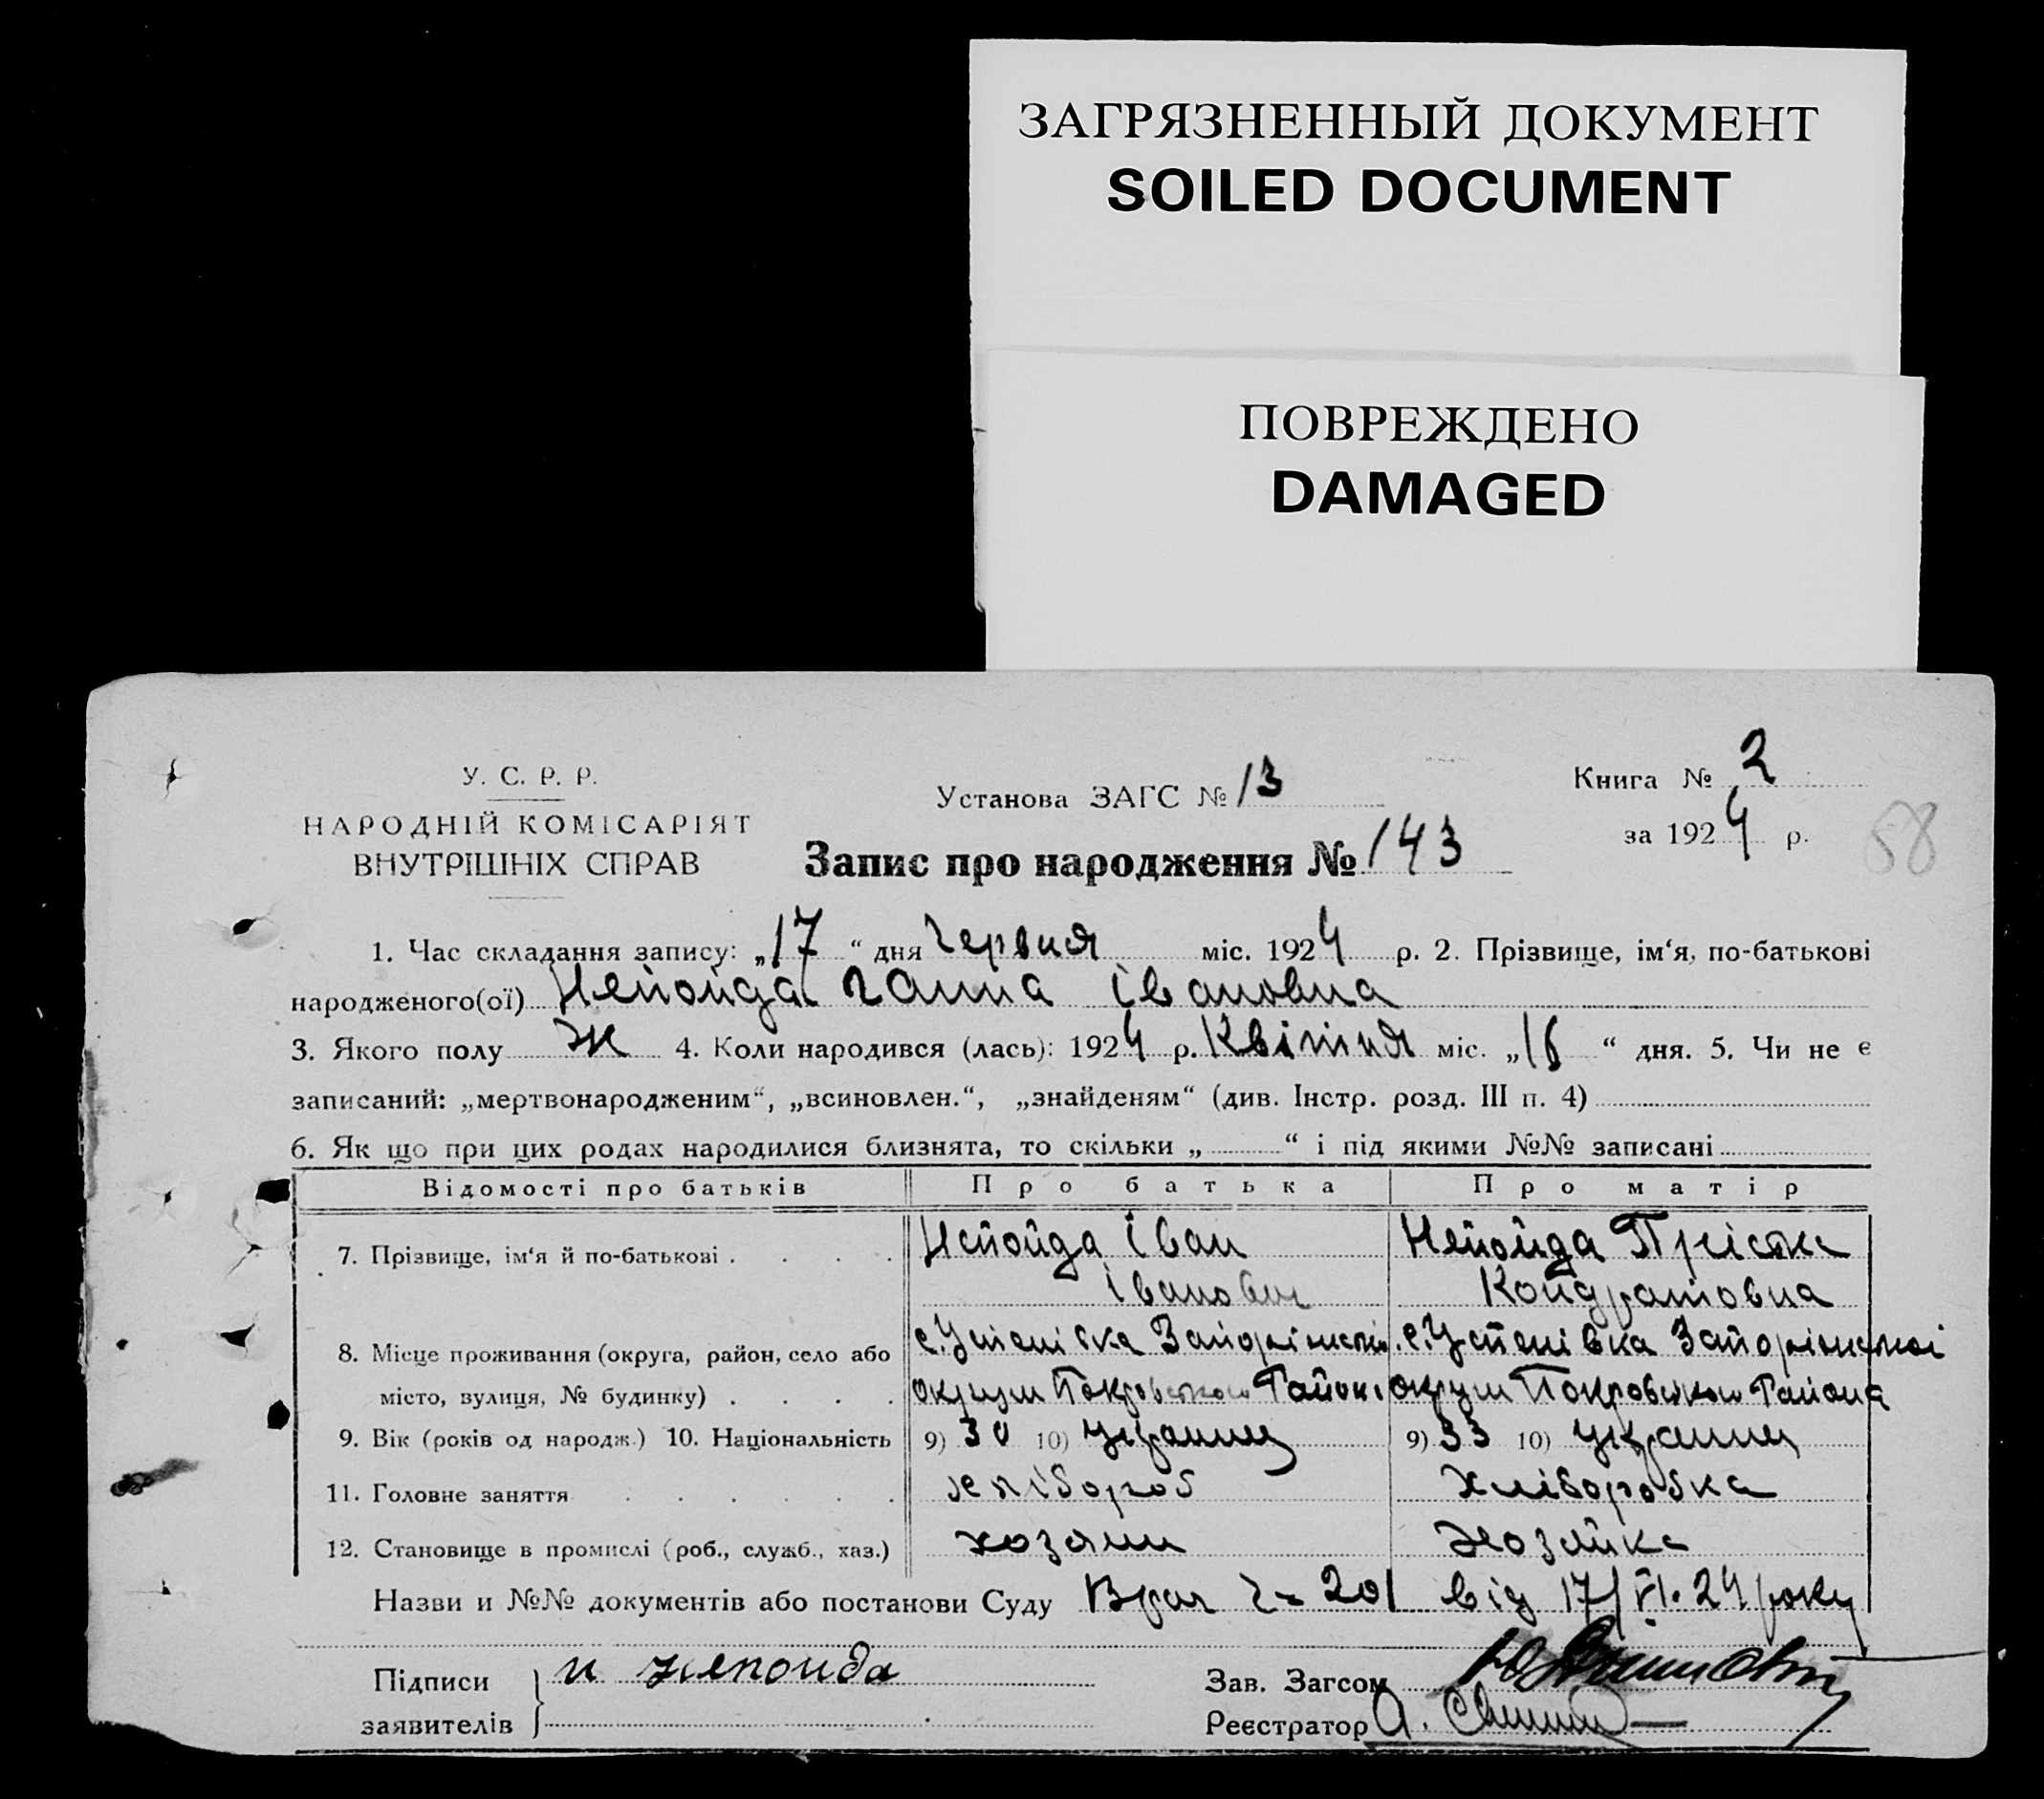 ЗАГРЯЗНЕННЫЙ ДОКУМЕНТ
SOILED DOCUMENT
ПОВРЕЖДЕНО
DAMAGED
У. С. Р. Р.
НАРОДНІЙ КОМІСАРІЯТ
ВНУТРІШНІХ СПРАВ
Установа ЗАГС № 13
Запис про народження № 143
Книга № 2
за 1924 р.
58
1. Час складання запису: „17“ дня Червня міс. 1924 р. 2. Прізвище, ім‘я, по-батькові
народженого(ої) Непойда Ганна Івановна
3. Якого полу Ж 4. Коли народився (лась): 1924 р. Квітня міс. „16“ дня. 5. Чи не є
записаний: „мертвонародженим“, „всиновлен.“, „знайденям“ (див. Інстр. розд. III п. 4)
6. Як що при цих родах народилися близнята, то скільки „ “ і під якими №№ записані
Відомості про батьків Про батька Про матір
7. Прізвище, ім‘я й по-батькові . . . . Непойда Іван Непойда Пріська
Іванович Кондратовна
8. Місце проживання (округа, район, село або с. Успенівка Запоріжської с. Успенівка Запоріжської
місто, вулиця, № будинку) . . . . округи Покровського Району округи Покровського Района
9. Вік (років од народж.) 10. Національність 9) 30 10) Українец 9) 33 10) Украинц
11. Головне заняття . . . . . . хлібороб хліборобка
12. Становище в промислі (роб., служб., хаз.) хозяин хозяйка
Назви и №№ документів або постанови Суду Врач ч= 201 від 17/VI.24 року
Підписи и непоида
заявителів
Зав. Загсом
Реєстратор А.